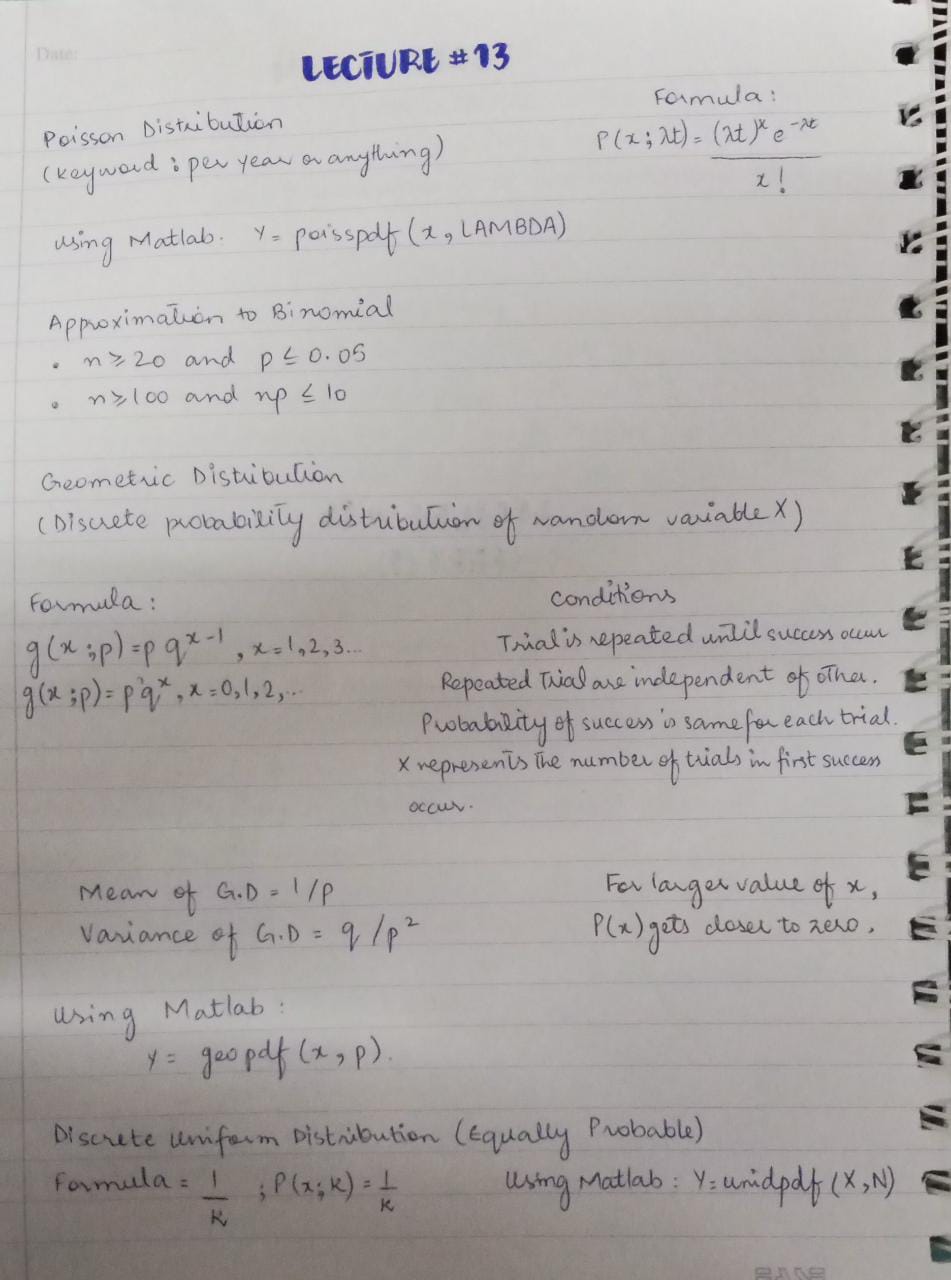 Date:
LECTURE #13
Poisson Distribution
(keyword : per year or anything)
Formula:
P(x; λt) = (λt)^x e^-λt / x!
using Matlab. Y = poisspdf (x, LAMBDA)
Approximation to Binomial
• n ≥ 20 and p ≤ 0.05
• n ≥ 100 and np ≤ 10
Geometric Distribution
(Discrete probability distribution of random variable X)
Formula:
g(x;p) = p q^x-1, x = 1,2,3...
g(x;p) = p q^x, x = 0,1,2,...
Conditions
Trial is repeated until success occur
Repeated Trial are independent of other.
Probability of success is same for each trial.
X represents The number of trials in first success
occur.
Mean of G.D = 1/p
Variance of G.D = q/p²
For larger value of x,
P(x) gets closer to zero.
using Matlab:
Y = geopdf (x, p).
Discrete Uniform Distribution (Equally Probable)
Formula = 1/k ; P(x; k) = 1/k
Using Matlab: Y = unidpdf (X, N)